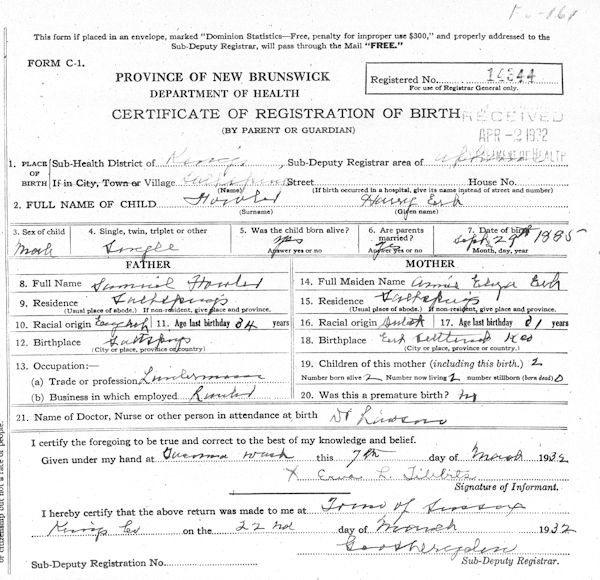 This form if placed in an envelope, marked "Dominion Statistics—Free, penalty for improper use $300," and properly addressed to the
Sub-Deputy Registrar, will pass through the Mail "FREE."
FORM C-1.
PROVINCE OF NEW BRUNSWICK
DEPARTMENT OF HEALTH
Registered No. 14344
For use of Registrar General only.
CERTIFICATE OF REGISTRATION OF BIRTH
(BY PARENT OR GUARDIAN)
RECEIVED
APR -2 1932
DEPARTMENT OF HEALTH
1. PLACE OF BIRTH Sub-Health District of Kings Sub-Deputy Registrar area of
If in City, Town or Village Saltsprings Street House No.
(Name) (If birth occurred in a hospital, give its name instead of street and number)
2. FULL NAME OF CHILD Fowler Harry Erb
(Surname) (Given name)
3. Sex of child Male
4. Single, twin, triplet or other Single
5. Was the child born alive? Yes
Answer yes or no
6. Are parents married? Yes
Answer yes or no
7. Date of birth Sept 29th 1885
Month, day, year
FATHER
8. Full Name Samuel Fowler
9. Residence Saltsprings
(Usual place of abode.) If non-resident, give place and province.
10. Racial origin English 11. Age last birthday 34 years
12. Birthplace Saltsprings
(City or place, province or country)
13. Occupation:—
(a) Trade or profession Lumberman
(b) Business in which employed
MOTHER
14. Full Maiden Name Annie Eliza Erb
15. Residence Saltsprings
(Usual place of abode.) If non-resident, give place and province.
16. Racial origin Dutch 17. Age last birthday 31 years
18. Birthplace Erb Settlement K Co
(City or place, province or country)
19. Children of this mother (including this birth.) 2
Number born alive 2 Number now living 2 number stillborn (born dead) 0
20. Was this a premature birth? No
21. Name of Doctor, Nurse or other person in attendance at birth Dr Lawson
I certify the foregoing to be true and correct to the best of my knowledge and belief.
Given under my hand at Tacoma Wash this 7th day of March 1932
X L. Tibbits
Signature of Informant.
I hereby certify that the above return was made to me at Town of Sussex
Kings Co on the 22nd day of March 1932
Sub-Deputy Registration No. Sub-Deputy Registrar.
or citizenship but not a race of people.